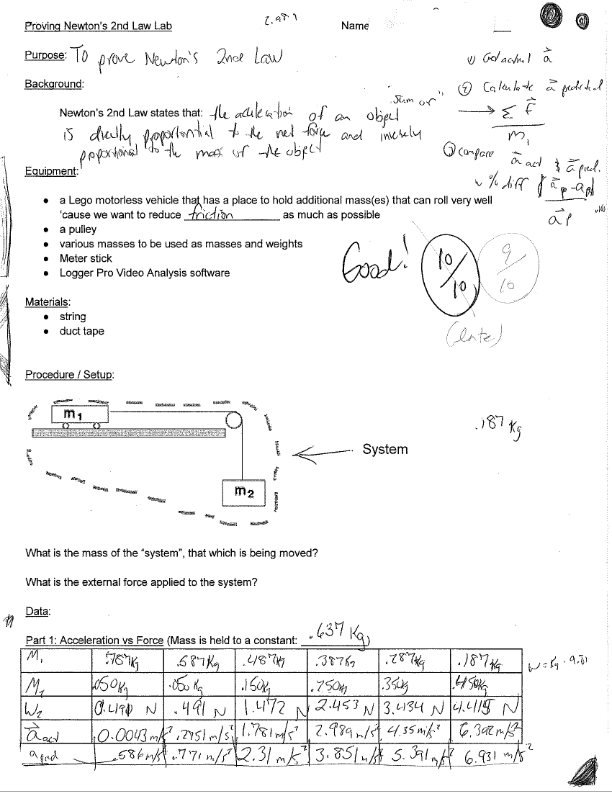 Proving Newton's 2nd Law Lab
2.981
Name
Purpose: To prove Newton's 2nd Law
① Get actual a
② Calculate a predicted
→ Σ F
m,
③ compare a act & a pred.
% diff
ap - aa
ap
Background:
Newton's 2nd Law states that: the acceleration of an object
"sum of"
is directly proportional to the net force and inversely
proportional to the mass of the object
Equipment:
• a Lego motorless vehicle that has a place to hold additional mass(es) that can roll very well
'cause we want to reduce friction as much as possible
• a pulley
• various masses to be used as masses and weights
• Meter stick
• Logger Pro Video Analysis software
Good!
10/10
9/10
(late)
Materials:
• string
• duct tape
Procedure / Setup:
m1
m2
System
.187 Kg
What is the mass of the "system", that which is being moved?
What is the external force applied to the system?
Data:
Part 1: Acceleration vs Force (Mass is held to a constant: .637 Kg)
M1 .787Kg .587Kg .487Kg .387Kg .287Kg .187Kg
.050Kg .050Kg .150Kg .250Kg .350Kg .450Kg
W2 0.491 N .491 N 1.472 N 2.453 N 3.434 N 4.415 N
a act 0.0043 m/s² .2951 m/s² 1.781 m/s² 2.989 m/s² 4.35 m/s² 6.392 m/s²
a pred .586 m/s² .771 m/s² 2.31 m/s² 3.851 m/s² 5.391 m/s² 6.931 m/s²